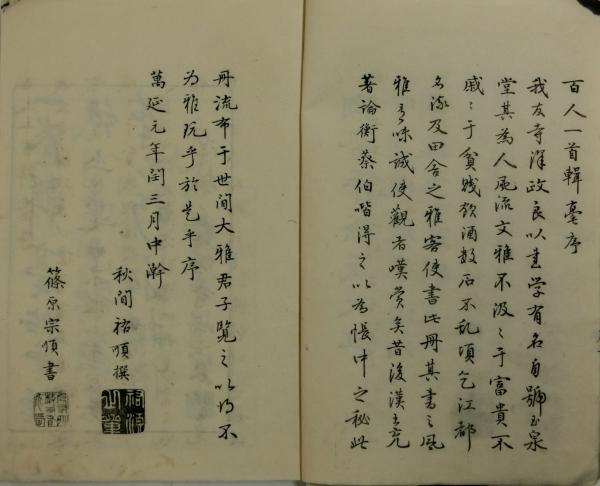 百人一首輯毫序
我友寺澤政良以書学有名自號玉泉
堂其為人風流文雅不汲〻于富貴不
戚〻于貧賤飲酒数石不乱頃乞江都
名流及田舎之雅客使書此冊其書之風
雅有味誠使觀者嘆賞矣昔後漢王充
著論衡蔡伯喈得之以為帳中之秘此
冊流布于世間大雅君子覧之以得不
为雅玩乎於是乎序
萬延元年閏三月中澣
秋間祐順撰
篠原宗順書